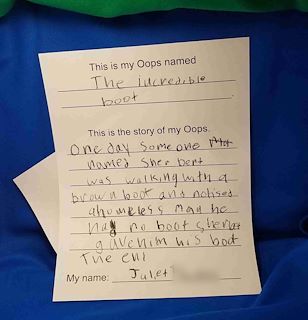 This is my Oops named
The incredible
boot
This is the story of my Oops.
One day Someone
named Sherbert
was walking with a
brown boot and notised
a homeless man he
had no boot sherbert
gave him his boot
The end
My name: Julet